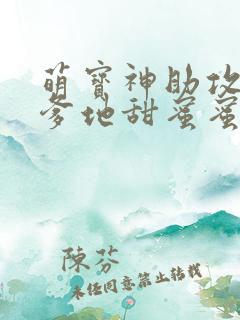 萌寶神助攻
爹地甜蜜蜜
陳芬
未經同意禁止轉載